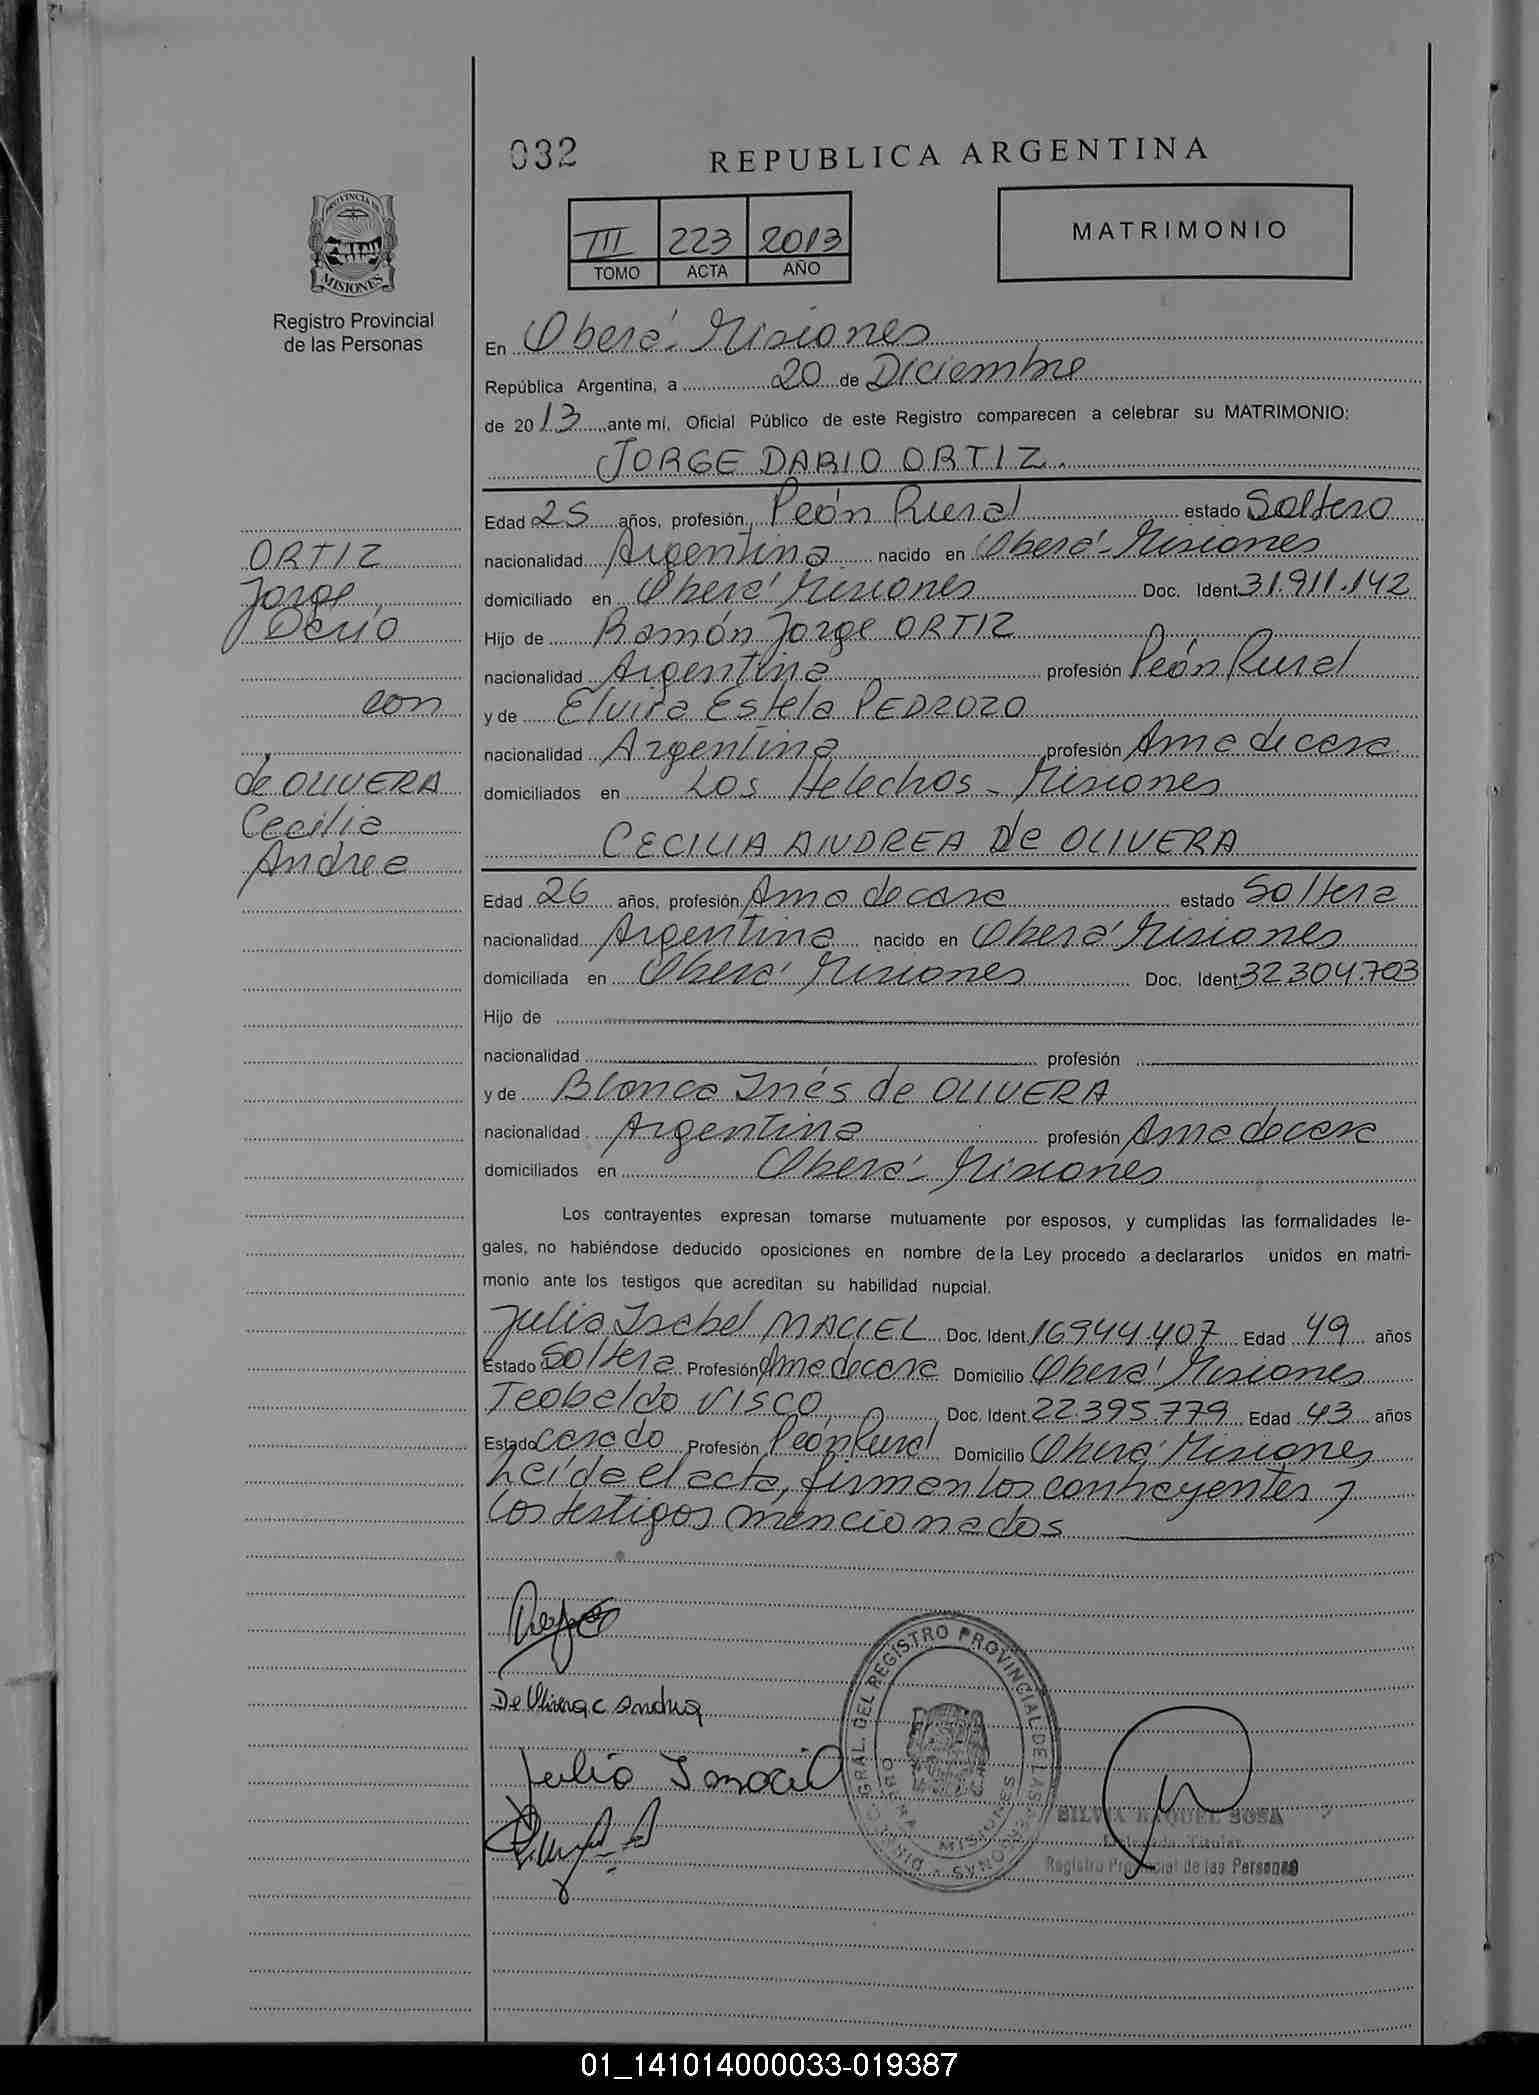 032
REPUBLICA ARGENTINA
PROVINCIA DE
MISIONES
Registro Provincial
de las Personas
III 223 2013
TOMO ACTA AÑO
MATRIMONIO
En Oberá - Misiones
República Argentina, a 20 de Diciembre
de 2013 ante mí, Oficial Público de este Registro comparecen a celebrar su MATRIMONIO:
JORGE DARIO ORTIZ.
Edad 25 años, profesión Peón Rural estado Soltero
nacionalidad Argentina nacido en Oberá - Misiones
domiciliado en Oberá Misiones Doc. Ident 31.911.142
Hijo de Ramón Jorge ORTIZ
nacionalidad Argentina profesión Peón Rural
y de Elvira Estela PEDROZO
nacionalidad Argentina profesión Ama de casa
domiciliados en Los Helechos - Misiones
ORTIZ
Jorge
Dario
con
de OLIVERA
Cecilia
Andrea
CECILIA ANDREA De OLIVERA
Edad 26 años, profesión Ama de casa estado Soltera
nacionalidad Argentina nacido en Oberá Misiones
domiciliada en Oberá Misiones Doc. Ident 32.304.703
Hijo de
nacionalidad profesión
y de Blanca Inés de OLIVERA
nacionalidad Argentina profesión Ama de casa
domiciliados en Oberá - Misiones
Los contrayentes expresan tomarse mutuamente por esposos, y cumplidas las formalidades le-
gales, no habiéndose deducido oposiciones en nombre de la Ley procedo a declararlos unidos en matri-
monio ante los testigos que acreditan su habilidad nupcial.
Julia Isabel MACIEL Doc. Ident. 16944.407 Edad 49 años
Estado Soltera Profesión Ama de casa Domicilio Oberá Misiones
Teobaldo VISCO Doc. Ident. 22.395.779 Edad 43 años
Estado Casado Profesión Peón Rural Domicilio Oberá Misiones
Leída el acta, firman los contrayentes y
los testigos mencionados
De Olivera C Andrea
DIREC. GRAL. DEL REGISTRO PROVINCIAL DE LAS PERSONAS
OBERA MISIONES
SILVIA RAQUEL SOSA
Delegada Titular
Registro Provincial de las Personas
01_141014000033-019387